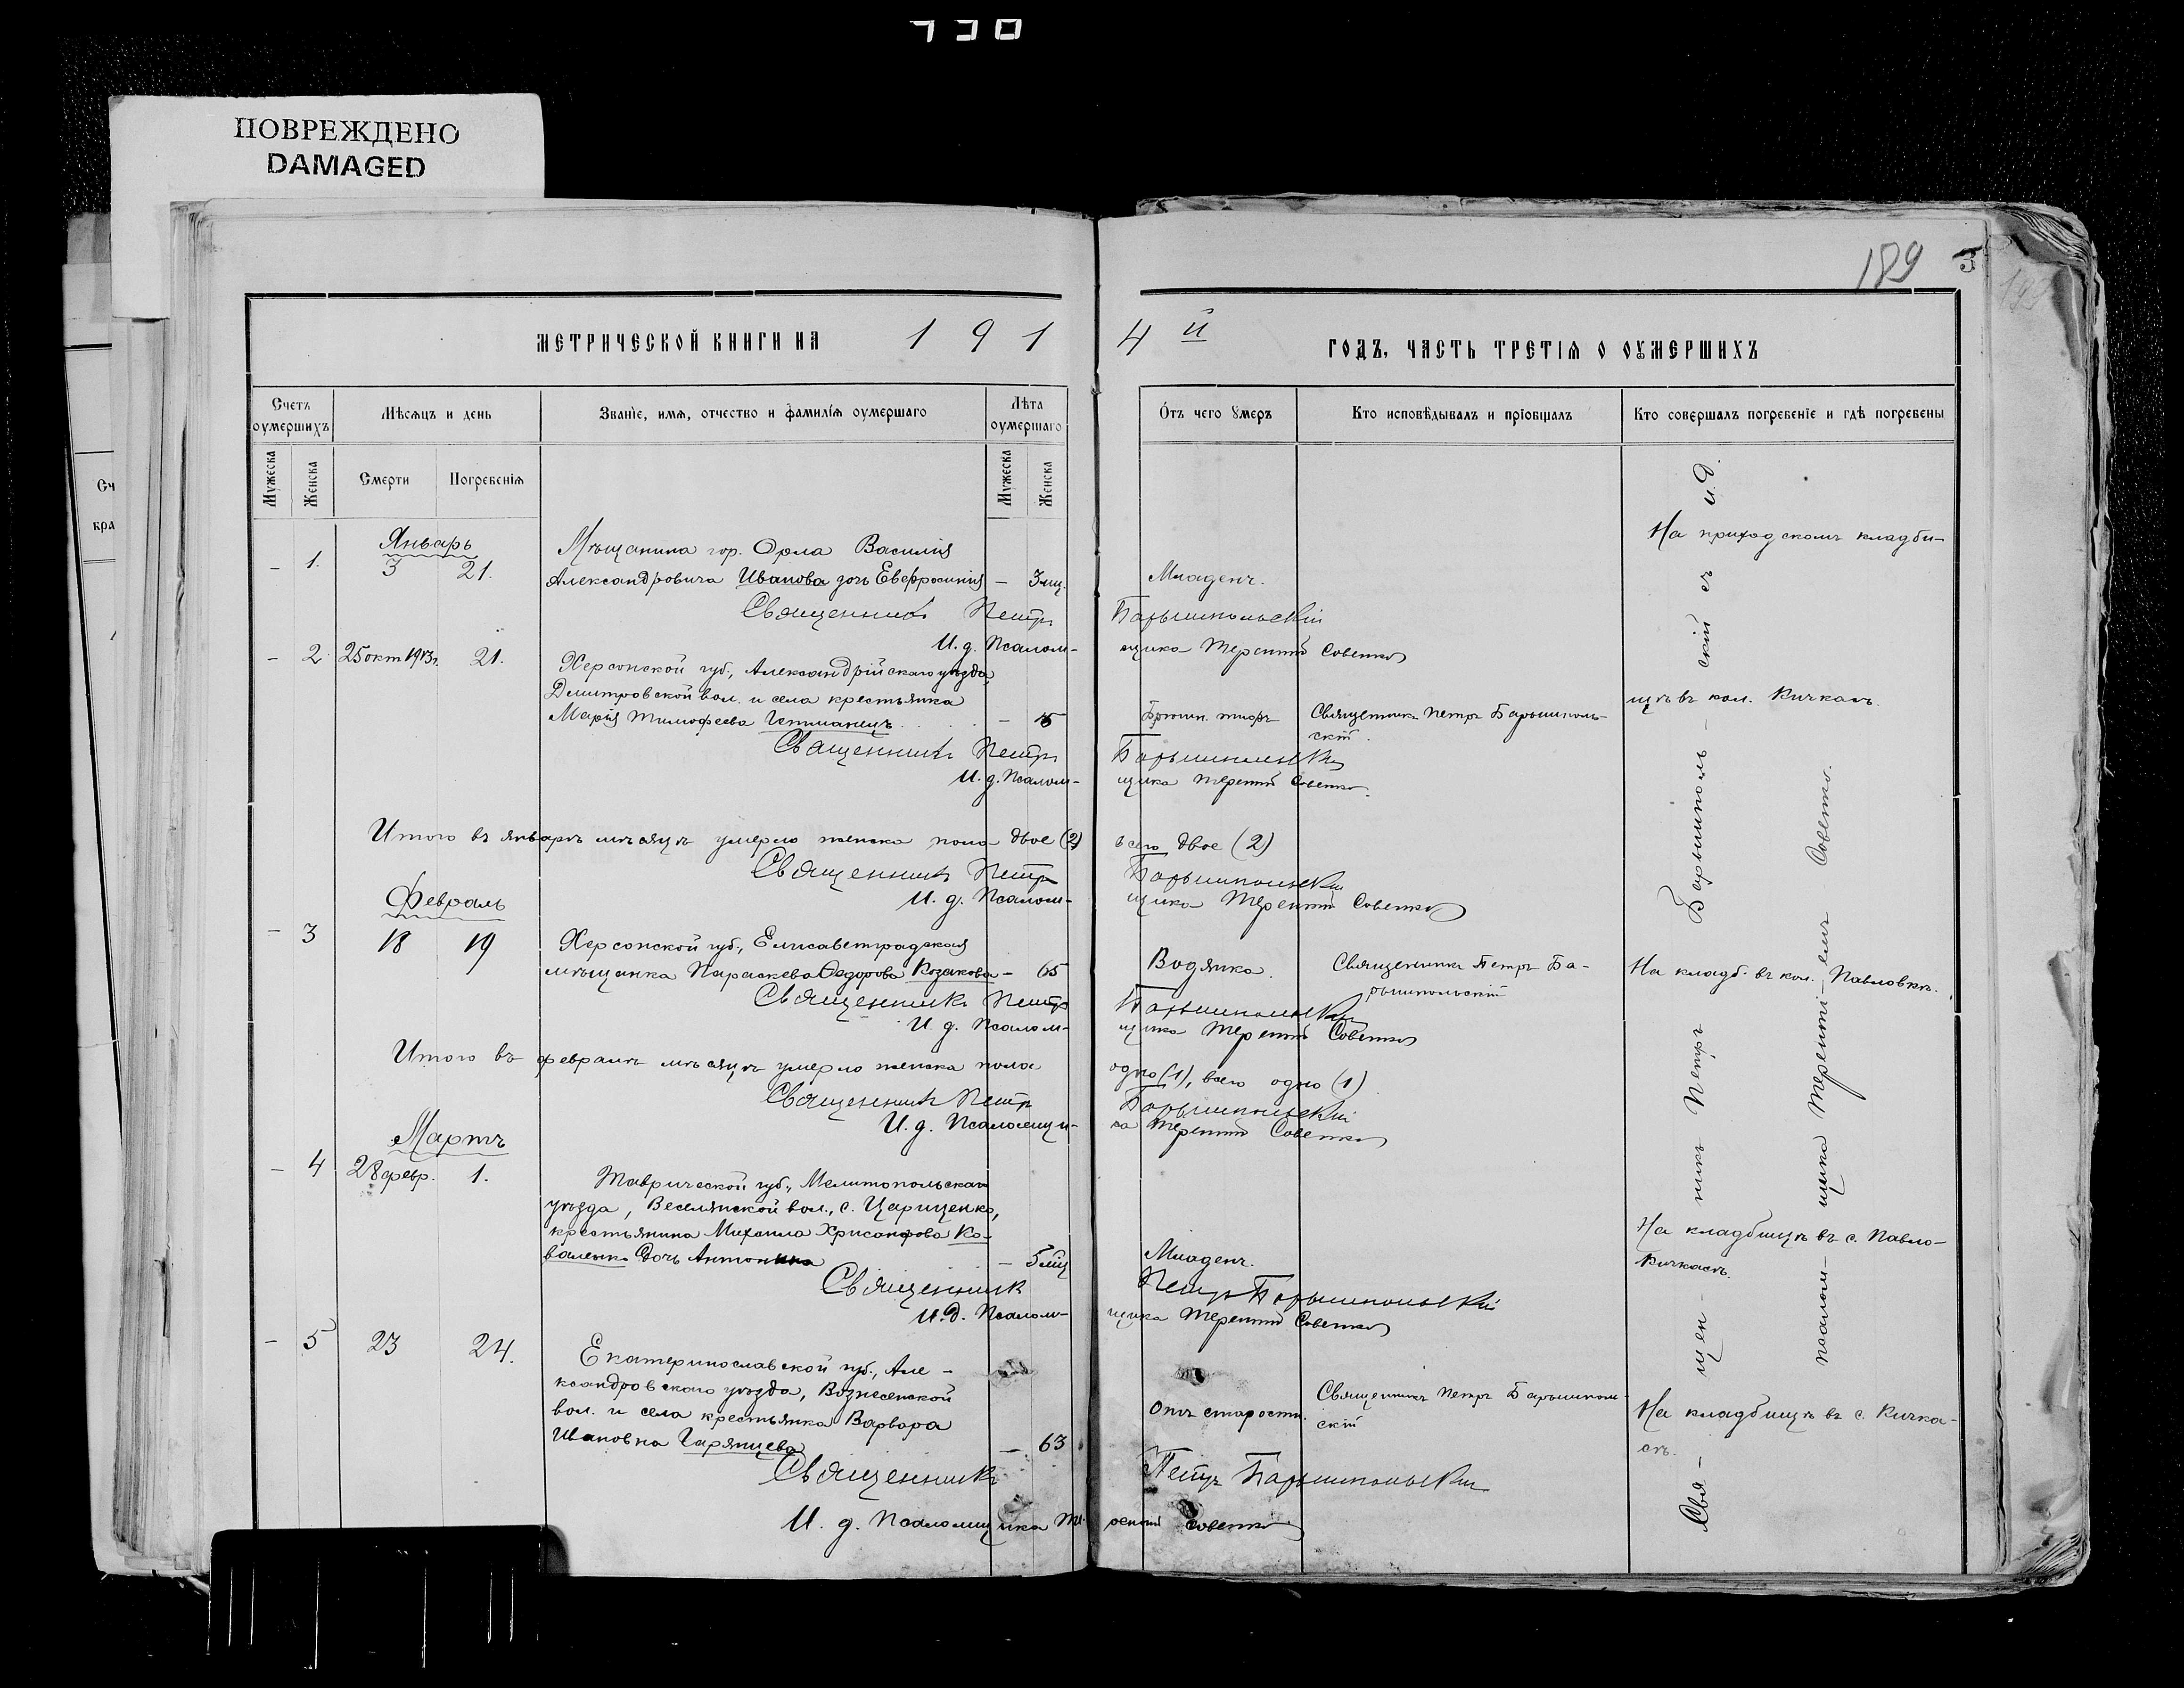 ПОВРЕЖДЕНО
DAMAGED
189 3
МЕТРИЧЕСКОЙ КНИГИ НА 191
4й ГОДЪ, ЧАСТЬ ТРЕТІЯ О ОУМЕРШИХЪ
Счетъ оумершихъ
Мѣсяцъ и день
Званіе, имя, отчество и фамилія оумершаго
Лѣта оумершаго
Отъ чего умеръ
Кто исповѣдывалъ и пріобщалъ
Кто совершалъ погребеніе и гдѣ погребены
Мужеска
Женска
Смерти
Погребенія
Мужеска
Женска
Январь
– 1. 3 21.
Мѣщанина гор. Орла Василія
Александровича Иванова дочь Евфросинія – 3 мц.
Младенч.
На приходскомъ кладби-
Священникъ Петръ Барышпольскій
И. д. Псалом- щика Терентій Советко
– 2 25 окт 1913 г. 21.
Херсонской губ., Александрійскаго уѣзда,
Дмитровской вол. и села крестьянка
Марія Тимофеева Гетманецъ –
Брюшн. тифъ
Священникъ Петръ Барышполь-
скій.
щѣ въ кол. Кичкасъ.
Священникъ Петръ Барышпольскій
И. д. Псалом- щика Терентій Советко.
Итого въ январѣ мѣсяцѣ умерло женска пола двое (2) всего двое (2)
Священникъ Петръ Барышпольскій
И. д. Псалом- щика Терентій Советко
Февраль
– 3 18 19
Херсонской губ., Елисаветградская
мѣщанка Параскева Ѳедорова Козакова – 65
Водянка.
Священникъ Петръ Ба-
рышпольскій
На кладб. въ кол. Павловкѣ.
Священникъ Петръ Барышпольскій
И. д. Псалом- щика Терентій Советко
Итого въ февралѣ мѣсяцѣ умерло женска пола одно (1), всего одно (1)
Священникъ Петръ Барышпольскій
И. д. Псаломщи- ка Терентій Советко
Мартъ
– 4 28 февр. 1.
Таврической губ., Мелитопольскаго
уѣзда, Веселянской вол., с. Цариценко,
крестьянина Михаила Хрисанфова Ко-
валенко дочь Антонина – 5 мц
Младенч.
На кладбищѣ въ с. Павло-
Кичкасъ.
Священникъ Петръ Барышпольскій
И. д. Псалом- щика Терентій Советко
– 5 23 24.
Екатеринославской губ., Але-
ксандровскаго уѣзда, Вознесенской
вол. и села крестьянка Варвара
Ивановна Гарянцева – 63
Отъ старости.
Священникъ Петръ Барышполь-
скій
На кладбищѣ въ с. Кичка-
съ.
Священникъ Петръ Барышпольскій
И. д. Псаломщика Терентій Советко
Свя- щен- никъ Петръ Барышполь- скій съ и. д.
псалом- щика Терентіемъ Советко.